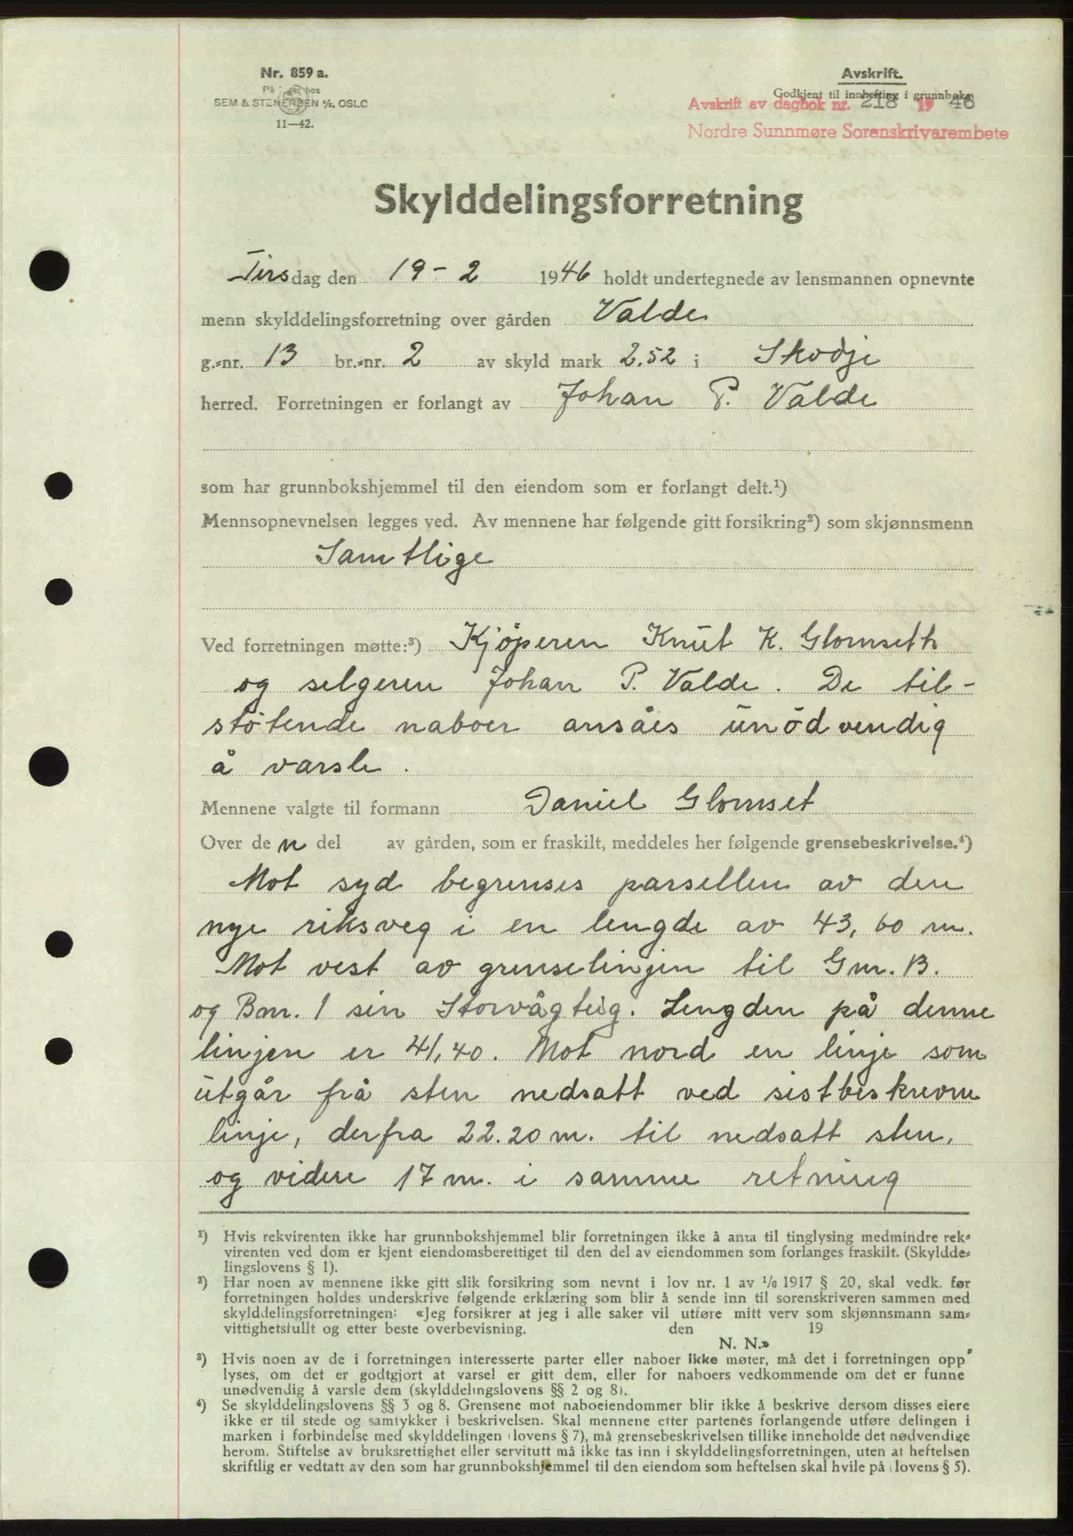 Nr. 859 a.
SEM & STENERSEN A/S. OSLO
11—42.
Avskrift.
Godkjent til innhefting i grunnboka.
Avskrift av dagbok nr. 218 19 46
Nordre Sunnmøre Sorenskrivarembete
Skylddelingsforretning
Tirsdag den 19 - 2 1946 holdt undertegnede av lensmannen opnevnte
menn skylddelingsforretning over gården Valde
g.-nr. 13 br.-nr. 2 av skyld mark 2.52 i Skodje
herred. Forretningen er forlangt av Johan P. Valde
som har grunnbokshjemmel til den eiendom som er forlangt delt.¹)
Mennsopnevnelsen legges ved. Av mennene har følgende gitt forsikring²) som skjønnsmenn
Samtlige
Ved forretningen møtte:³) Kjöperen Knut K. Glomseth
og selgeren Johan P. Valde. De til-
stötende naboer ansåes unödvendig
å varsle.
Mennene valgte til formann Daniel Glomset
Over den del av gården, som er fraskilt, meddeles her følgende grensebeskrivelse.⁴)
Mot syd begrenses parsellen av den
nye riksveg i en lengde av 43,60 m.
Mot vest av grenselinjen til Gnr. 13.
og Bnr. 1 sin Storvågteig. Lengden på denne
linjen er 41,40. Mot nord en linje som
utgår frå sten nedsatt ved sistbeskrevne
linje, derfra 22.20 m. til nedsatt sten,
og videre 17 m. i samme retning
¹) Hvis rekvirenten ikke har grunnbokshjemmel blir forretningen ikke å anta til tinglysing medmindre rek-
virenten ved dom er kjent eiendomsberettiget til den del av eiendommen som forlanges fraskilt. (Skyldde-
lingslovens § 1).
²) Har noen av mennene ikke gitt slik forsikring som nevnt i lov nr. 1 av 1/6 1917 § 20, skal vedk. før
forretningen holdes underskrive følgende erklæring som blir å sende inn til sorenskriveren sammen med
skylddelingsforretningen: «Jeg forsikrer at jeg i alle saker vil utføre mitt verv som skjønnsmann sam-
vittighetsfullt og etter beste overbevisning. den 19
N. N.»
³) Hvis noen av de i forretningen interesserte parter eller naboer ikke møter, må det i forretningen opp-
lyses, om det er godtgjort at varsel er gitt dem, eller for naboers vedkommende om det er funne
unødvendig å varsle dem (skylddelingslovens §§ 2 og 8).
⁴) Se skylddelingslovens §§ 3 og 8. Grensene mot naboeiendommer blir ikke å beskrive dersom disses eiere
ikke er til stede og samtykker i beskrivelsen. Skal mennene etter partenes forlangende utføre delingen i
marken i forbindelse med skylddelingen (lovens § 7), må grensebeskrivelsen tillike inneholde det nødvendige
herom. Stiftelse av bruksrettighet eller servitutt må ikke tas inn i skylddelingsforretningen, uten at heftelsen
skriftlig er vedtatt av den som har grunnbokshjemmel til den eiendom som heftelsen skal hvile på (lovens § 5).